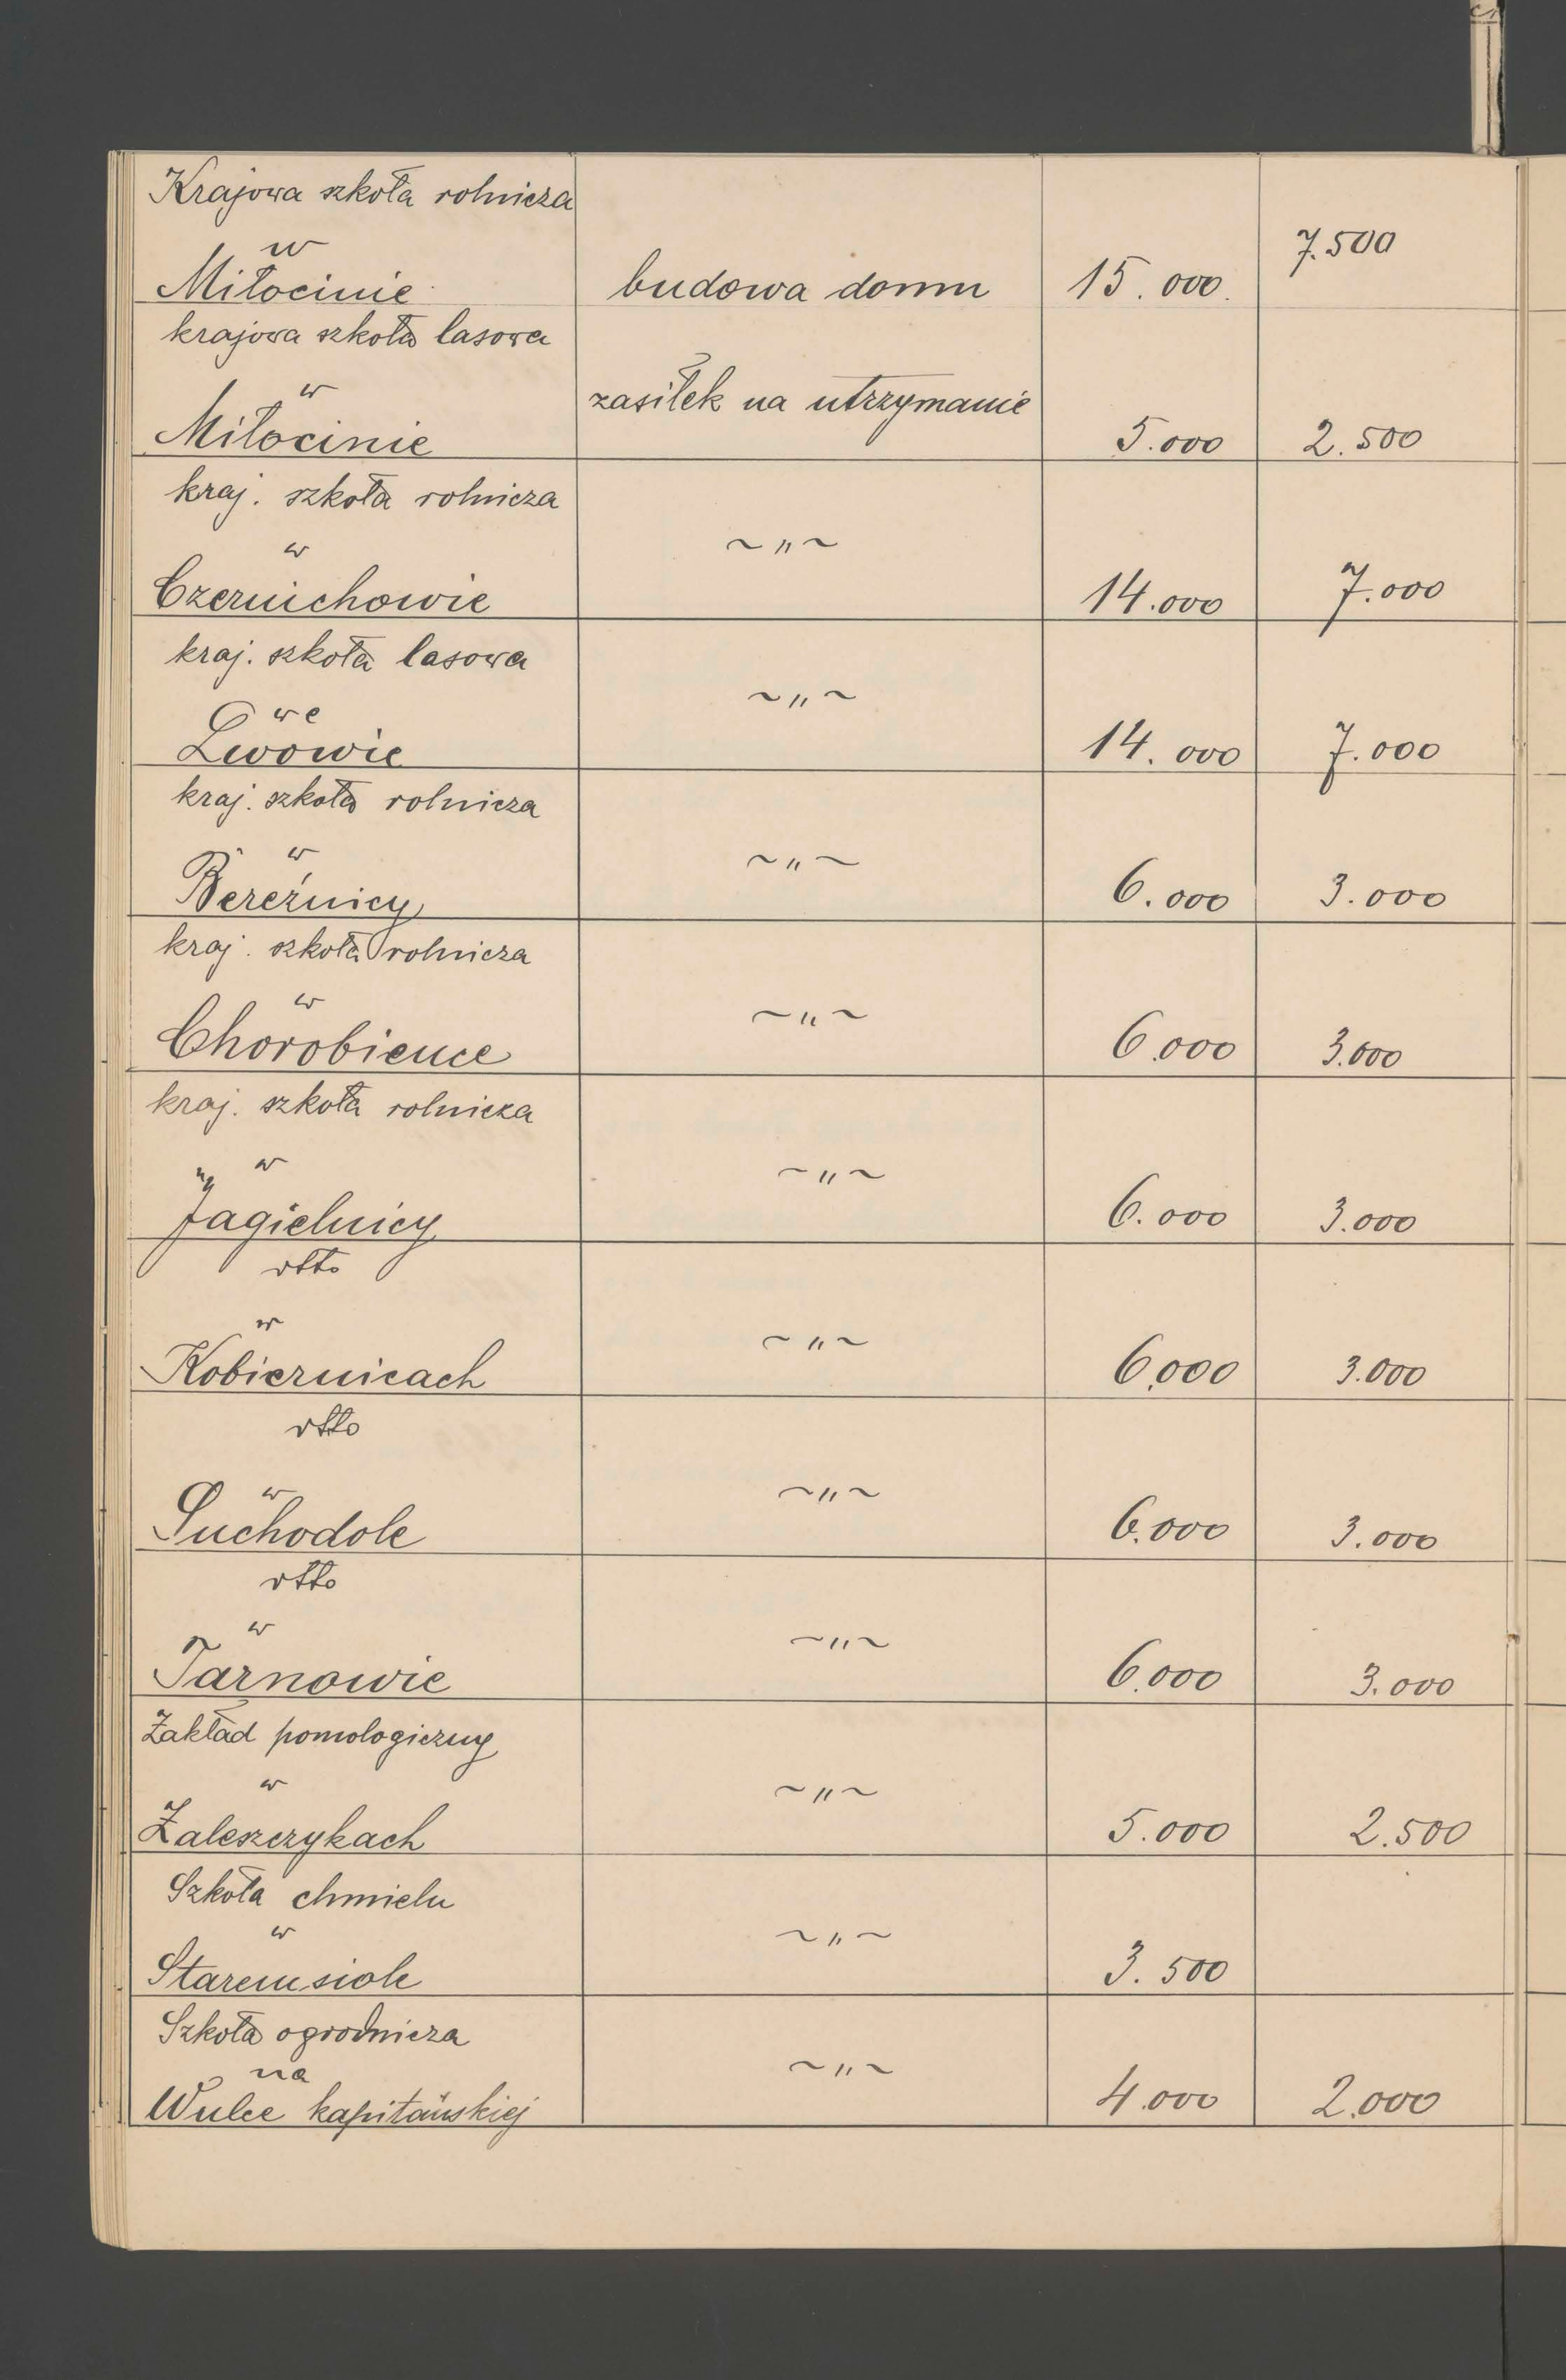 Krajowa szkoła rolnicza
w
Miłocinie budowa domu 15.000. 7.500
krajowa szkoła lasowa
w zasiłek na utrzymanie
Miłocinie 5.000 2.500
kraj. szkoła rolnicza
w ~ " ~
Czernichowie 14.000 7.000
kraj. szkoła lasowa
we ~ " ~
Lwowie 14.000 7.000
kraj. szkoła rolnicza
w ~ " ~
Bereźnicy 6.000 3.000
kraj. szkoła rolnicza
w ~ " ~
Chorobience 6.000 3.000
kraj. szkoła rolnicza
w ~ " ~
Jagielnicy 6.000 3.000
dtto
w ~ " ~
Kobiernicach 6.000 3.000
dtto
w ~ " ~
Suchodole 6.000 3.000
dtto
w ~ " ~
Tarnowie 6.000 3.000
Zakład pomologiczny
w ~ " ~
Zaleszczykach 5.000 2.500
Szkoła chmielu
w ~ " ~
Staremsiole 3.500
Szkoła ogrodnicza
na ~ " ~
Wulce kapitańskiej 4.000 2.000